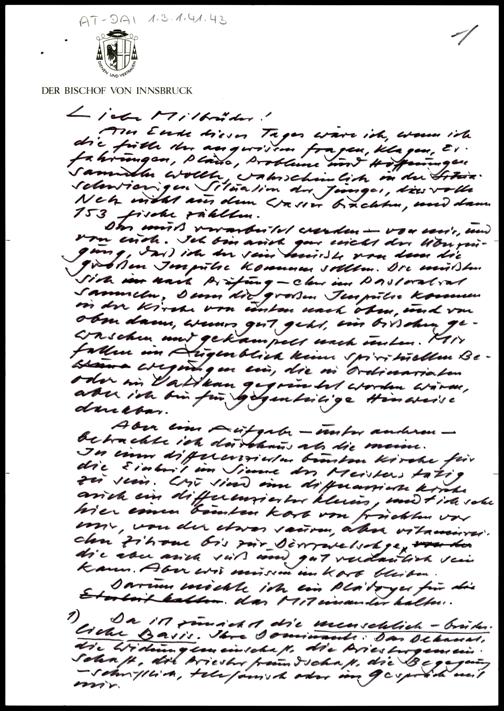 AT-DAI 1.3.1.41.43
1
DIENEN UND VERTRAUEN
DER BISCHOF VON INNSBRUCK
Liebe Mitbrüder!
Am Ende dieses Tages wäre ich, wenn ich
die Fülle der angerissenen Fragen, Klagen, Er-
fahrungen, Pläne, Probleme und Hoffnungen
sammeln wollte, wahrscheinlich in der
schwierigen Situation der Jünger, die volle
Netz nicht aus dem Wasser brachten, und dann
153 Fische zählten.
Das muß verarbeitet werden – von mir, und
von euch. Ich bin auch gar nicht der Überzeu-
gung, daß ich der sein müßte von dem die
großen Impulse kommen sollten. Die müßten
sich im nach Prüfung – eher im Pastoralrat
sammeln. Denn die großen Impulse kommen
in der Kirche von unten nach oben, und von
oben dann, wenns gut geht, ein bißchen ge-
waschen und gekampelt nach unten. Mir
fallen im Augenblick keine spirituellen Be-
wegungen ein, die in Ordinariaten
oder im Vatikan gegründet worden wären,
aber ich bin für gegenteilige Hinweise
dankbar.
Aber eine Aufgabe – unter anderen –
betrachte ich durchaus als die meine.
In einer differenzierten bunten Kirche für
die Einheit im Sinne des Meisters tätig
zu sein. Wir sind eine differenzierte Kirche
auch ein differenzierter Klerus, und ich sehe
hier einen bunten Korb von Früchten vor
mir, von der etwas sauren, aber vitaminrei-
chen Zitrone bis zur Dörrzwetschge,
die aber auch süß und gut verdaulich sein
kann. Aber wir müssen im Korb bleiben.
Darum möchte ich ein Plädoyer für die
Einheit halten. das Miteinander halten.
1) Da ist zunächst die menschlich-brüder-
liche Basis. Ihre Dominante: Das Dekanat,
die Widumgemeinschaft, die Priestergemein-
schaft, die Priesterfreundschaft, die Begegnung
– schriftlich, telefonisch oder im Gespräch mit
mir.